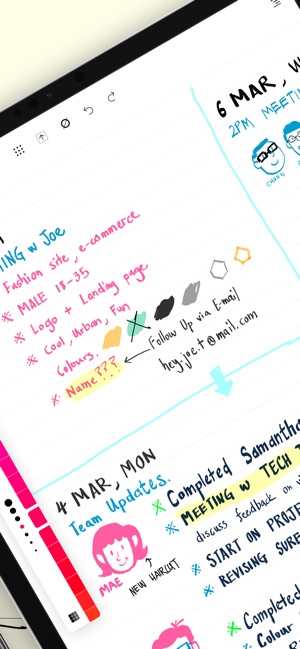 MEETING w Joe
Fashion site, e-commerce
* MALE 18-35
* Logo + Landing page
* Cool, Urban, Fun
Colours.
* Name???
Follow Up via E-mail
hey.joe.t@mail.com
6 MAR, W
2PM MEETIN
4 MAR, MON
Team Updates.
MAE
NEW HAIRCUT
* Completed Samantha
* MEETING w TECH T
discuss feedback on
* START ON PROJE
* REVISING SURE
* Completed
* Colour